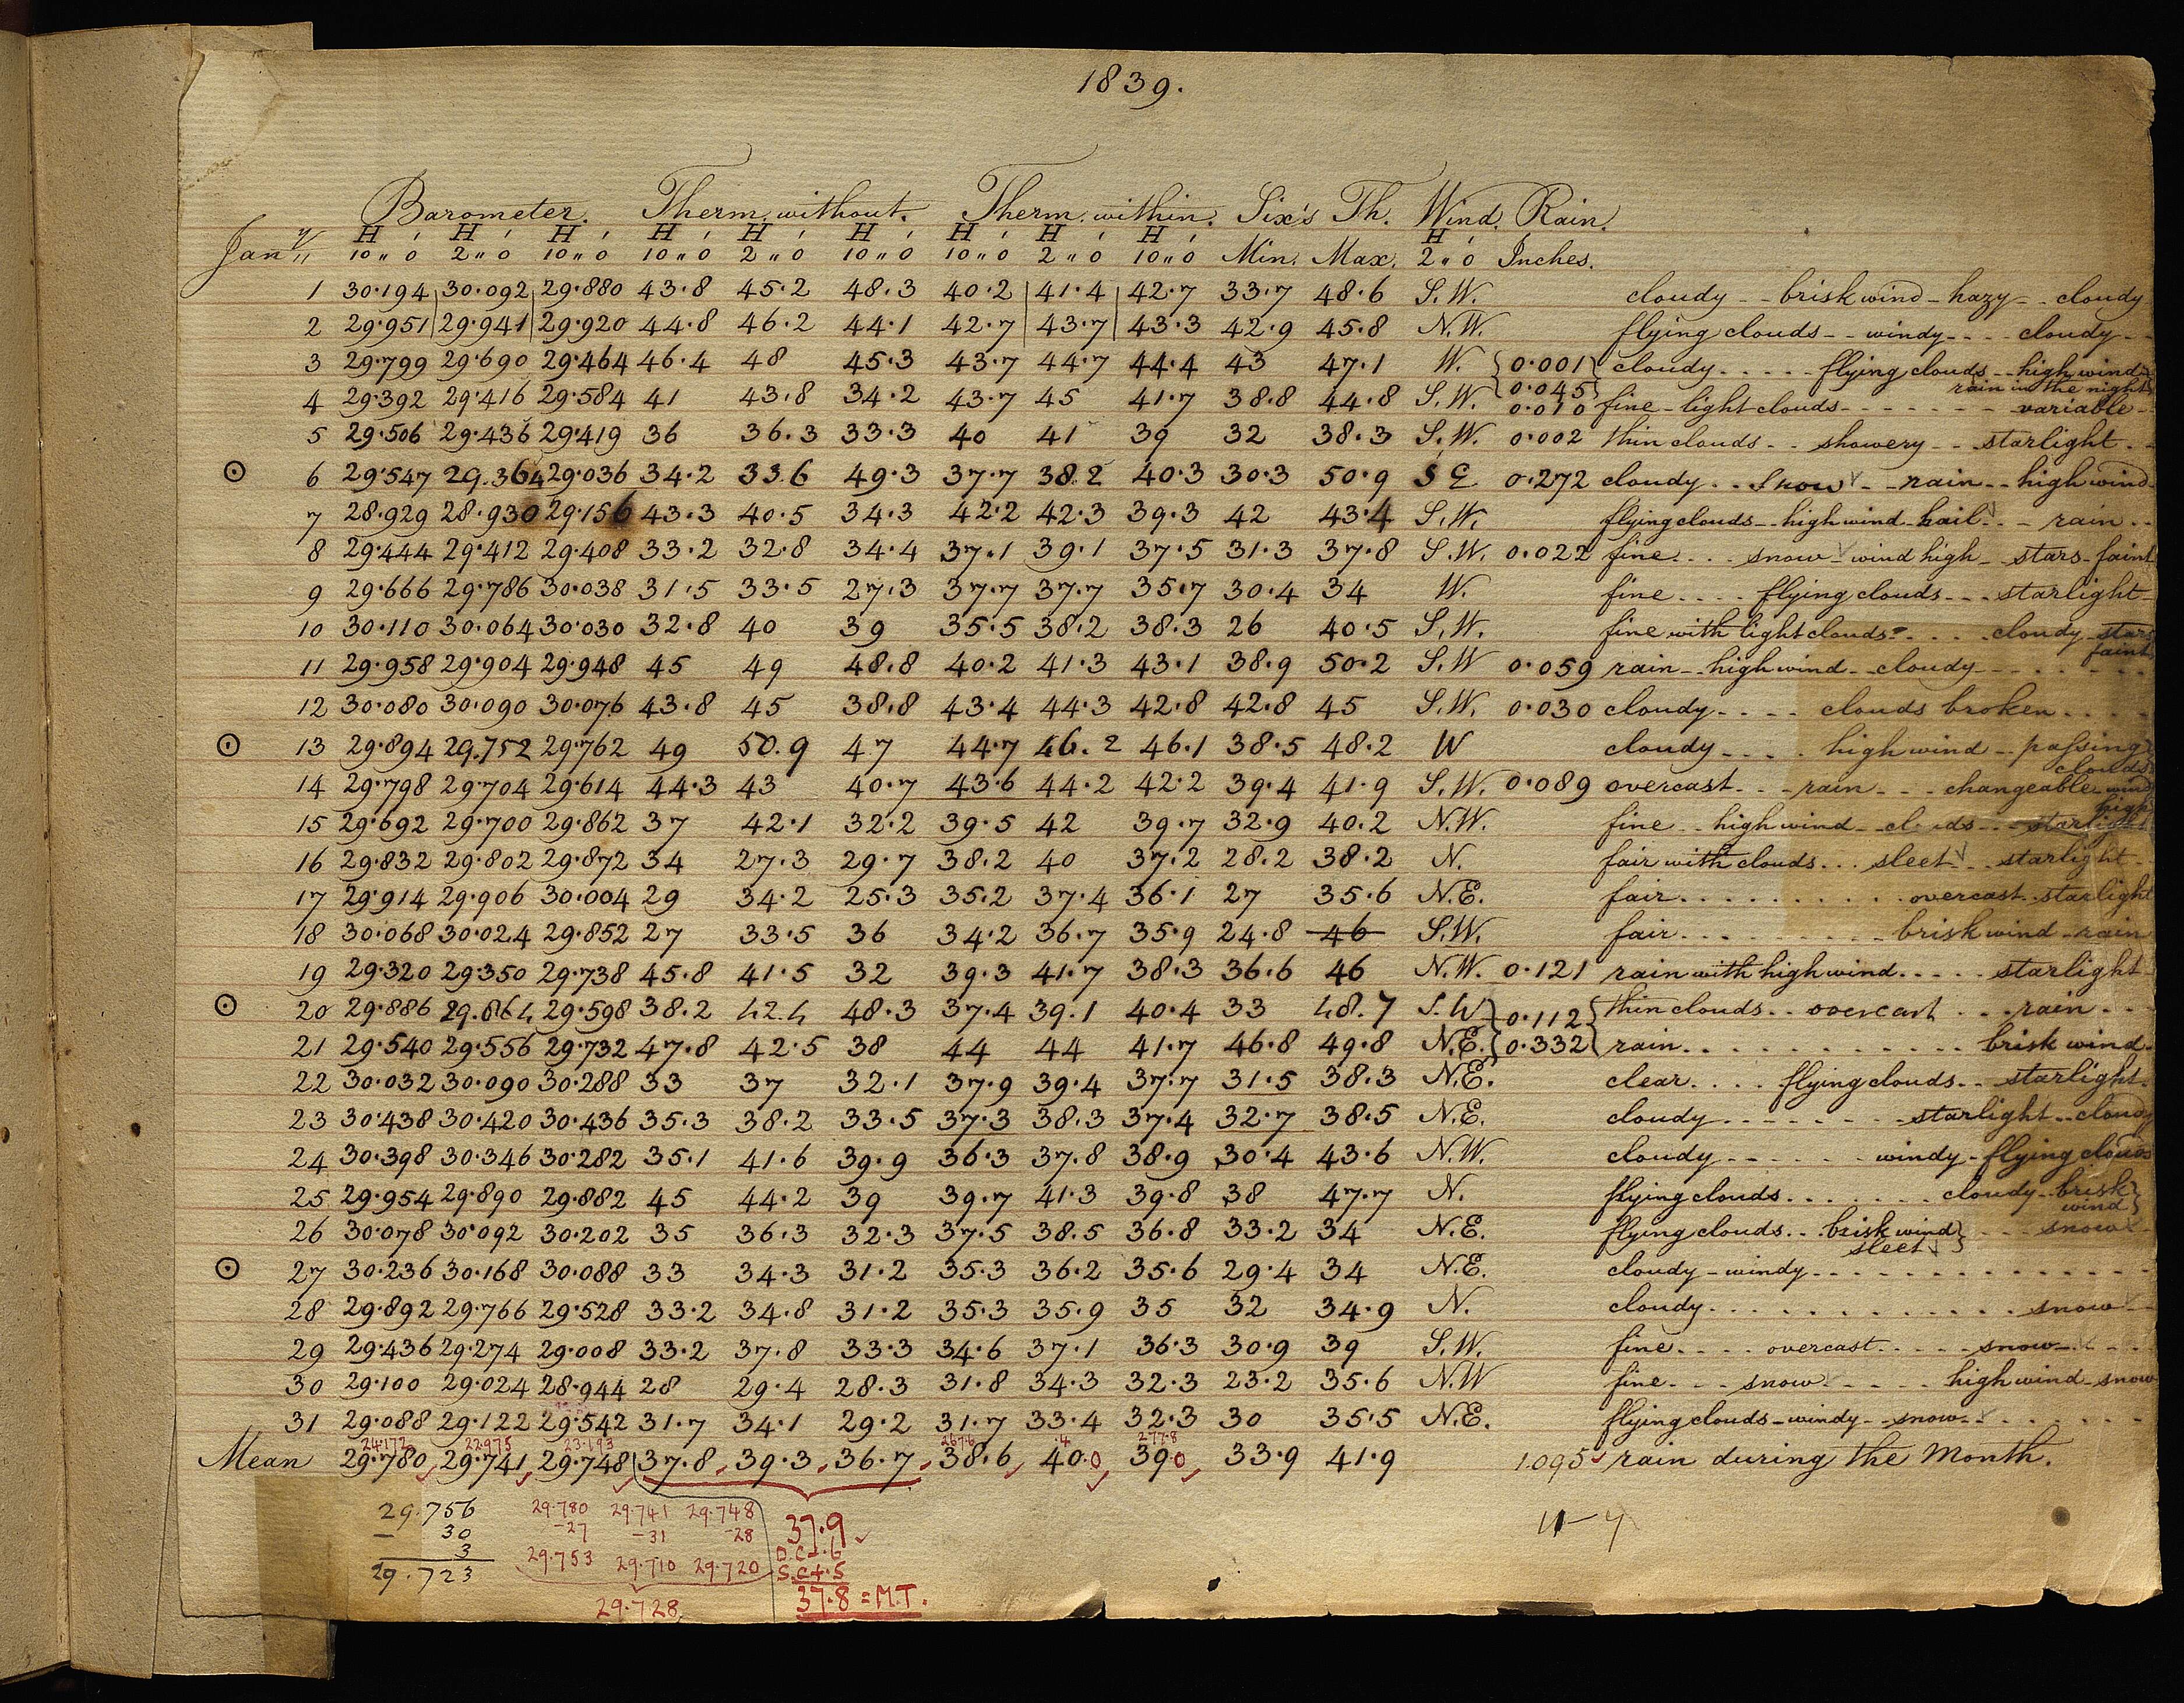 1839.
Barometer. Therm. without. Therm. within. Six's Th. Wind. Rain.
H ' H ' H ' H ' H ' H ' H ' H ' H ' H '
Jany 10 " 0 2 " 0 10 " 0 10 " 0 2 " 0 10 " 0 10 " 0 2 " 0 10 " 0 Min. Max. 2 " 0 Inches.
1 30.194 30.092 29.880 43.8 45.2 48.3 40.2 41.4 42.7 33.7 48.6 S.W. cloudy - - brisk wind - hazy - - cloudy
2 29.951 29.941 29.920 44.8 46.2 44.1 42.7 43.7 43.3 42.9 45.8 N.W. flying clouds - - windy - - - - cloudy - -
3 29.799 29.690 29.464 46.4 48 45.3 43.7 44.7 44.4 43 47.1 W. { 0.001 } cloudy - - - - - flying clouds - - high wind
0.045 rain in the night
4 29.392 29.416 29.584 41 43.8 34.2 43.7 45 41.7 38.8 44.8 S.W. 0.010 fine - light clouds - - - - - - - variable -
5 29.506 29.436 29.419 36 36.3 33.3 40 41 39 32 38.3 S.W. 0.002 thin clouds - - showery - - starlight - -
☉ 6 29.547 29.364 29.036 34.2 33.6 49.3 37.7 38.2 40.3 30.3 50.9 S E 0.272 cloudy - - Snow - - rain - - high wind -
7 28.929 28.930 29.156 43.3 40.5 34.3 42.2 42.3 39.3 42 43.4 S.W. flying clouds - - high wind - hail - - - rain - -
8 29.444 29.412 29.408 33.2 32.8 34.4 37.1 39.1 37.5 31.3 37.8 S.W. 0.022 fine - - - - snow - wind high - stars - faint
9 29.666 29.786 30.038 31.5 33.5 27.3 37.7 37.7 35.7 30.4 34 W. fine - - - - flying clouds - - - starlight -
10 30.110 30.064 30.030 32.8 40 39 35.5 38.2 38.3 26 40.5 S.W. fine with light clouds - - - - cloudy - stars
faint
11 29.958 29.904 29.948 45 49 48.8 40.2 41.3 43.1 38.9 50.2 S.W 0.059 rain - - high wind - - cloudy - - - - - -
12 30.080 30.090 30.076 43.8 45 38.8 43.4 44.3 42.8 42.8 45 S.W. 0.030 cloudy - - - - clouds broken - - - -
☉ 13 29.894 29.752 29.762 49 50.9 47 44.7 46.2 46.1 38.5 48.2 W cloudy - - - - high wind - - passing
clouds
14 29.798 29.704 29.614 44.3 43 40.7 43.6 44.2 42.2 39.4 41.9 S.W. 0.089 overcast - - - rain - - - changeable - wind
high
15 29.692 29.700 29.862 37 42.1 32.2 39.5 42 39.7 32.9 40.2 N.W. fine - - high wind - - clouds - - - starlight
16 29.832 29.802 29.872 34 27.3 29.7 38.2 40 37.2 28.2 38.2 N. fair with clouds - - - sleet - - starlight -
17 29.914 29.906 30.004 29 34.2 25.3 35.2 37.4 36.1 27 35.6 N.E. fair - - - - - - - - - - overcast - - starlight
18 30.068 30.024 29.852 27 33.5 36 34.2 36.7 35.9 24.8 46 S.W. fair - - - - - - - - - brisk wind - rain
19 29.320 29.350 29.738 45.8 41.5 32 39.3 41.7 38.3 36.6 46 N.W. 0.121 rain with high wind - - - - - starlight -
☉ 20 29.886 29.864 29.598 38.2 42.4 48.3 37.4 39.1 40.4 33 48.7 S.W { 0.112 } thin clouds - - overcast - - - rain - - -
21 29.540 29.556 29.732 47.8 42.5 38 44 44 41.7 46.8 49.8 N.E. { 0.332 } rain - - - - - - - - - - - - - brisk wind -
22 30.032 30.090 30.288 33 37 32.1 37.9 39.4 37.7 31.5 38.3 N.E. clear - - - - flying clouds - - starlight -
23 30.438 30.420 30.436 35.3 38.2 33.5 37.3 38.3 37.4 32.7 38.5 N.E. cloudy - - - - - - - - starlight - - cloudy
24 30.398 30.346 30.282 35.1 41.6 39.9 36.3 37.8 38.9 30.4 43.6 N.W. cloudy - - - - - - windy - flying clouds
25 29.954 29.890 29.882 45 44.2 39 39.7 41.3 39.8 38 47.7 N. flying clouds - - - - - - - cloudy - brisk
wind
26 30.078 30.092 30.202 35 36.3 32.3 37.5 38.5 36.8 33.2 34 N.E. flying clouds - - brisk wind } - - - snow -
sleet
☉ 27 30.236 30.168 30.088 33 34.3 31.2 35.3 36.2 35.6 29.4 34 N.E. cloudy - windy - - - - - - - - - - - -
28 29.892 29.766 29.528 33.2 34.8 31.2 35.3 35.9 35 32 34.9 N. cloudy - - - - - - - - - - - - snow - -
29 29.436 29.274 29.008 33.2 37.8 33.3 34.6 37.1 36.3 30.9 39 S.W. fine - - - - overcast - - - - - snow - - - -
30 29.100 29.024 28.944 28 29.4 28.3 31.8 34.3 32.3 23.2 35.6 N.W fine - - - snow - - - - - high wind - snow
31 29.088 29.122 29.542 31.7 34.1 29.2 31.7 33.4 32.3 30 35.5 N.E. flying clouds - windy - - snow - - - - - - - -
24.172 22.975 23.193 267.6 .4 277.8
Mean 29.780 29.741 29.748 37.8 39.3 36.7 38.6 40.0 39.0 33.9 41.9 1.095 rain during the Month.
29.756 29.780 29.741 29.748 37.9
- 30 -27 -31 -28
3 29.753 29.710 29.720 S.C+.5
29.723 29.728 37.8 = M.T.